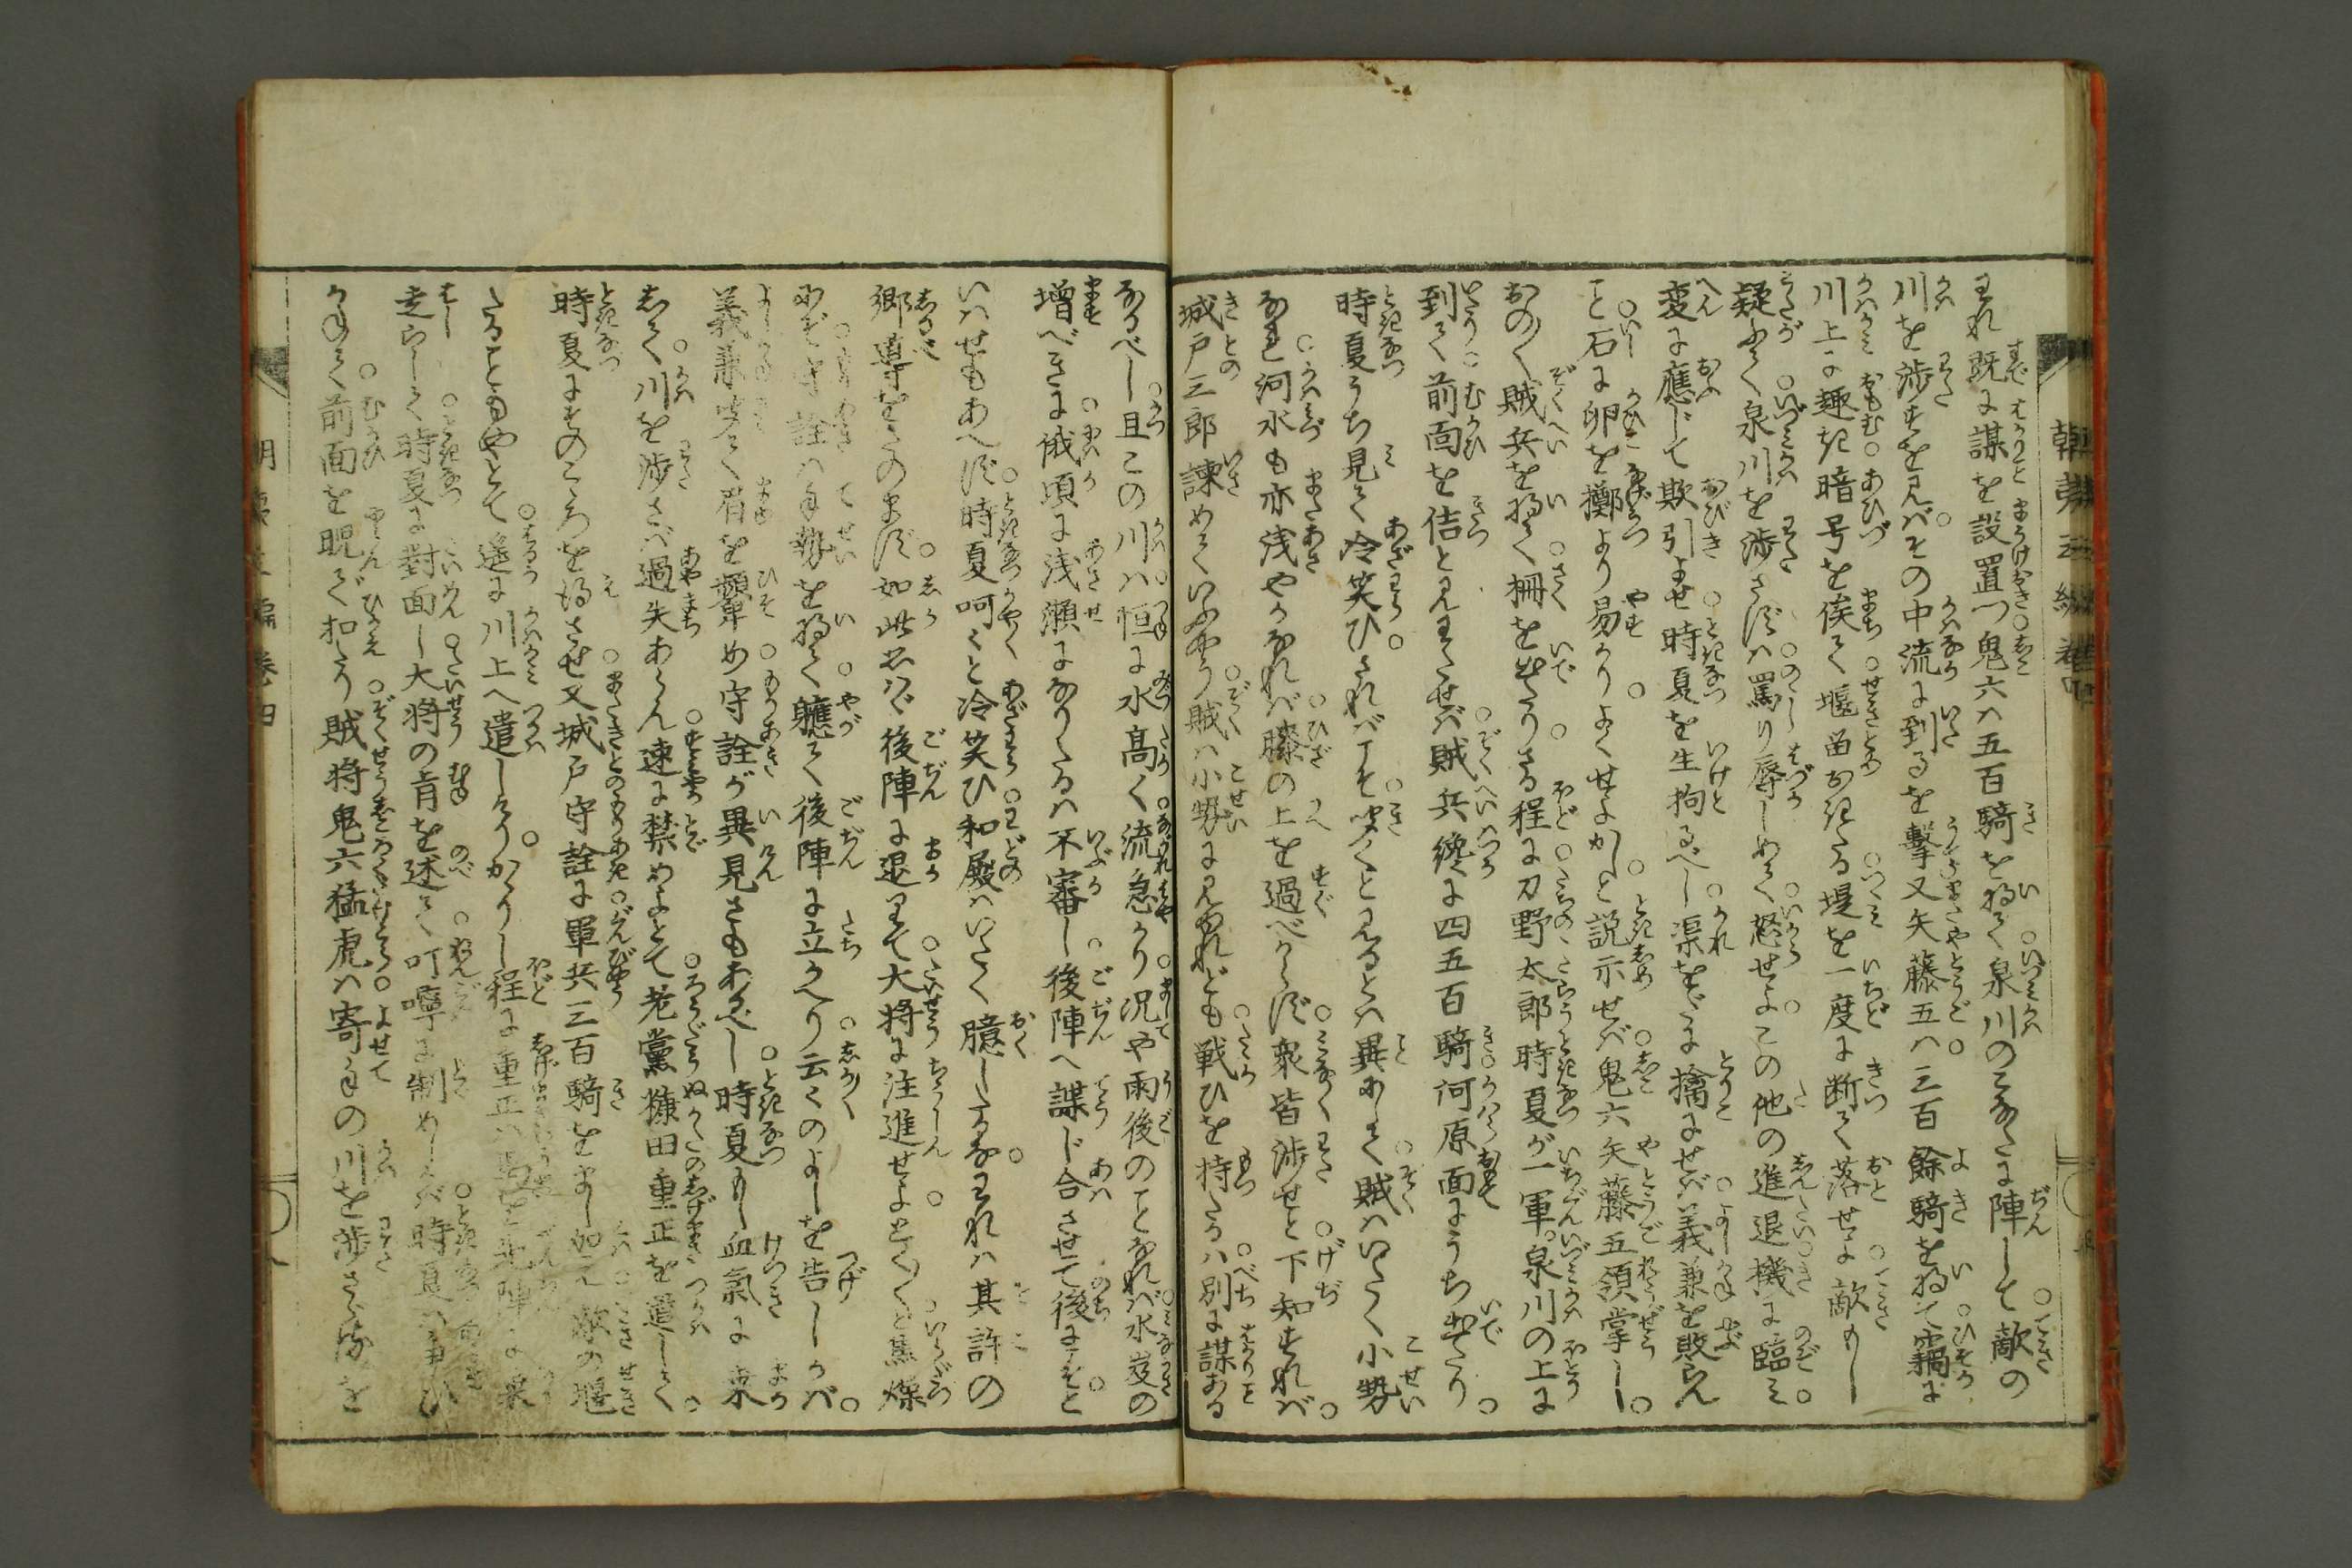 われ既に謀を設置つ鬼六は五百騎を将て泉川のこなたに陣して敵の
川を渉すを見ばその中流に到るを撃又矢藤五は三百餘騎を将て竊に
川上に趣き暗号を俟て堰畄おきたる堤を一度に断て落せよ敵もし
疑ふて泉川を渉さずは罵り辱しめて怒せよこの他の進退機に臨み
変に應じて欺引よせ時夏を生拘るべし渠をだに擒にせば義兼を敗らん
こと石に卵を擲より易かりよくせよかしと説示せば鬼六矢藤五領掌し
おの〱賊兵を将て柵を出たりさる程に刀野太郎時夏が一軍泉川の上に
到て前面を佶と見わたせば賊兵纔に四五百騎河原面にうち出たり
時夏うち見て冷笑ひさればこそ聞くと見るとは異にして賊はいたく小勢
なり河水も亦浅やかなれば膝の上を過べからず衆皆渉せと下知すれば
城戸三郎諫めていふやう賊は小勢に見ゆれども戦ひを持たるは別に謀ある
なるべし且この川は恒に水高く流急かり况や雨後のことなれば水岌の
増べきに俄頃に浅瀬になりたるは不審し後陣へ謀じ合させて後にこそと
いはせもあへず時夏呵〻と冷笑ひ和殿はいたく臆したるなわれは其許の
郷導をたのまず如此思はゞ後陣に退りて大将に注進せよとく〱と焦燥
にぞ守詮は手勢を将て軈て後陣に立かへり云云のよしを告しかば
義兼聞て眉を顰め守詮が異見さもあるべし時夏もし血氣に乗
して川を渉さば過失あらん速に禁めよとて老黨糠田重正を遣して
時夏にそのこゝろを得させ又城戸守詮に軍兵三百騎をまし加え敵の堰
たることもやとて遥に川上へ遣しけりかゝりし程に重正は馬を先陣に乗
走らして時夏に對面し大将の旨を述て叮嚀に制めしかば時夏は争ひ
かねて前面を睨で扣たり賊将鬼六猛虎は寄手の川を渉さゞるを